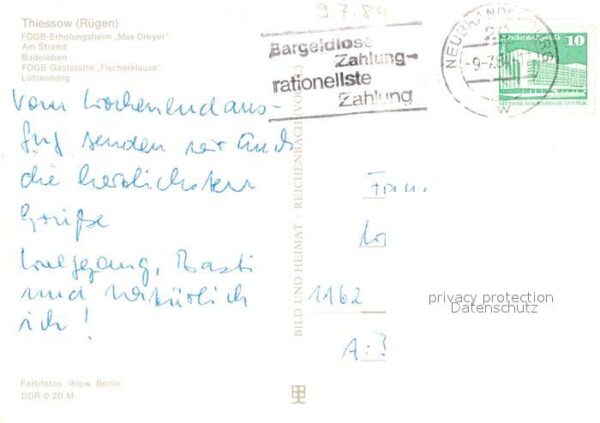 Thiessow (Rügen)
FDGB-Erholungsheim „Max Dreyer"
Am Strand
Badeleben
FDGB-Gaststätte „Fischerklause"
Lotsenberg
9.7.84
Bargeldlose
Zahlung-
rationellste
Zahlung
NEUBRANDENBURG
-9-7.84
W
Palast der Republik
10
DEUTSCHE DEMOKRATISCHE REPUBLIK
Vom Wochenendaus-
flug senden wir Euch
die herzlichsten
Grüße
Wolfgang, Basti
und natürlich
ich!
BILD UND HEIMAT · REICHENBACH
Fam
1162
privacy protection
Datenschutz
Farbfotos: Ihlow, Berlin
DDR 0,20 M